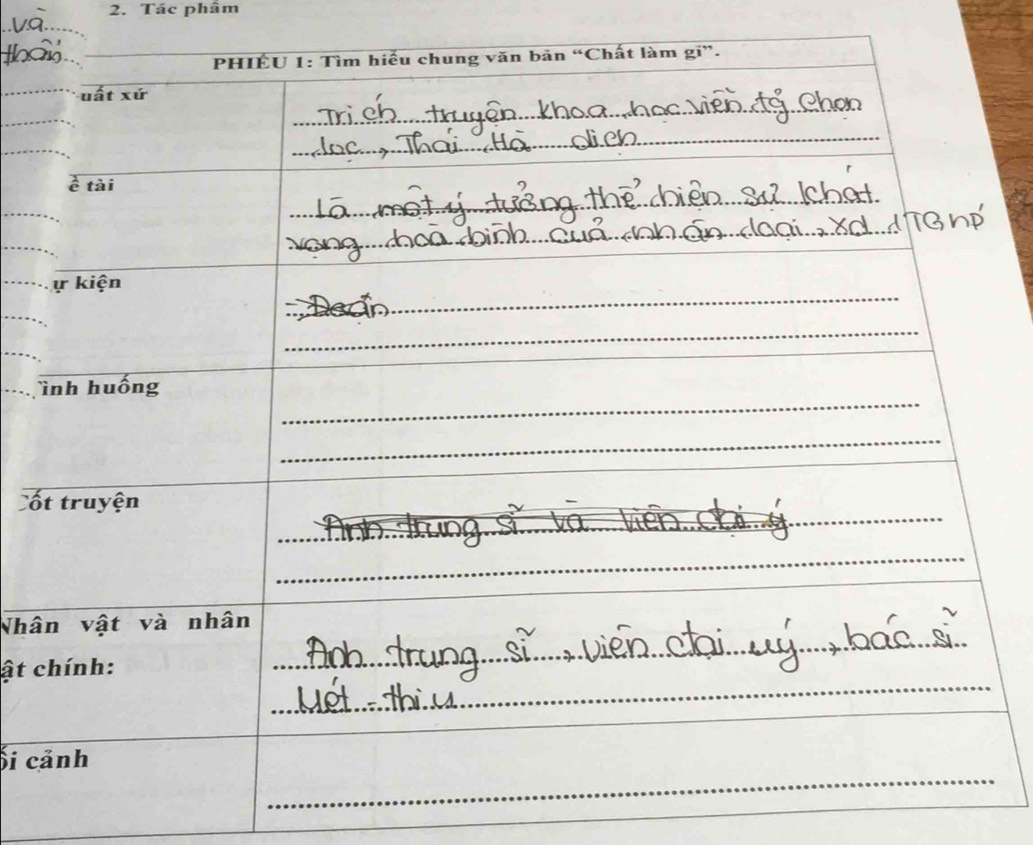 2. Tác phẩm
và
PHIẾU 1: Tìm hiểu chung văn bản “Chất làm gỉ”.
uất xứ
Trích truyện khoa học viễn tg chọn
lọc, Thái Hà dien
ề tài
Là một ý tưởng thể hiện sự khát
vọng hoà bình của nhân loại, xd
ự kiện
ình huống
Cốt truyện
Anh trung sĩ và viên
Nhân vật và nhân
ật chính:
Anh trung sĩ, viên đại uý, bác sĩ
Mét - thiu
ối cảnh